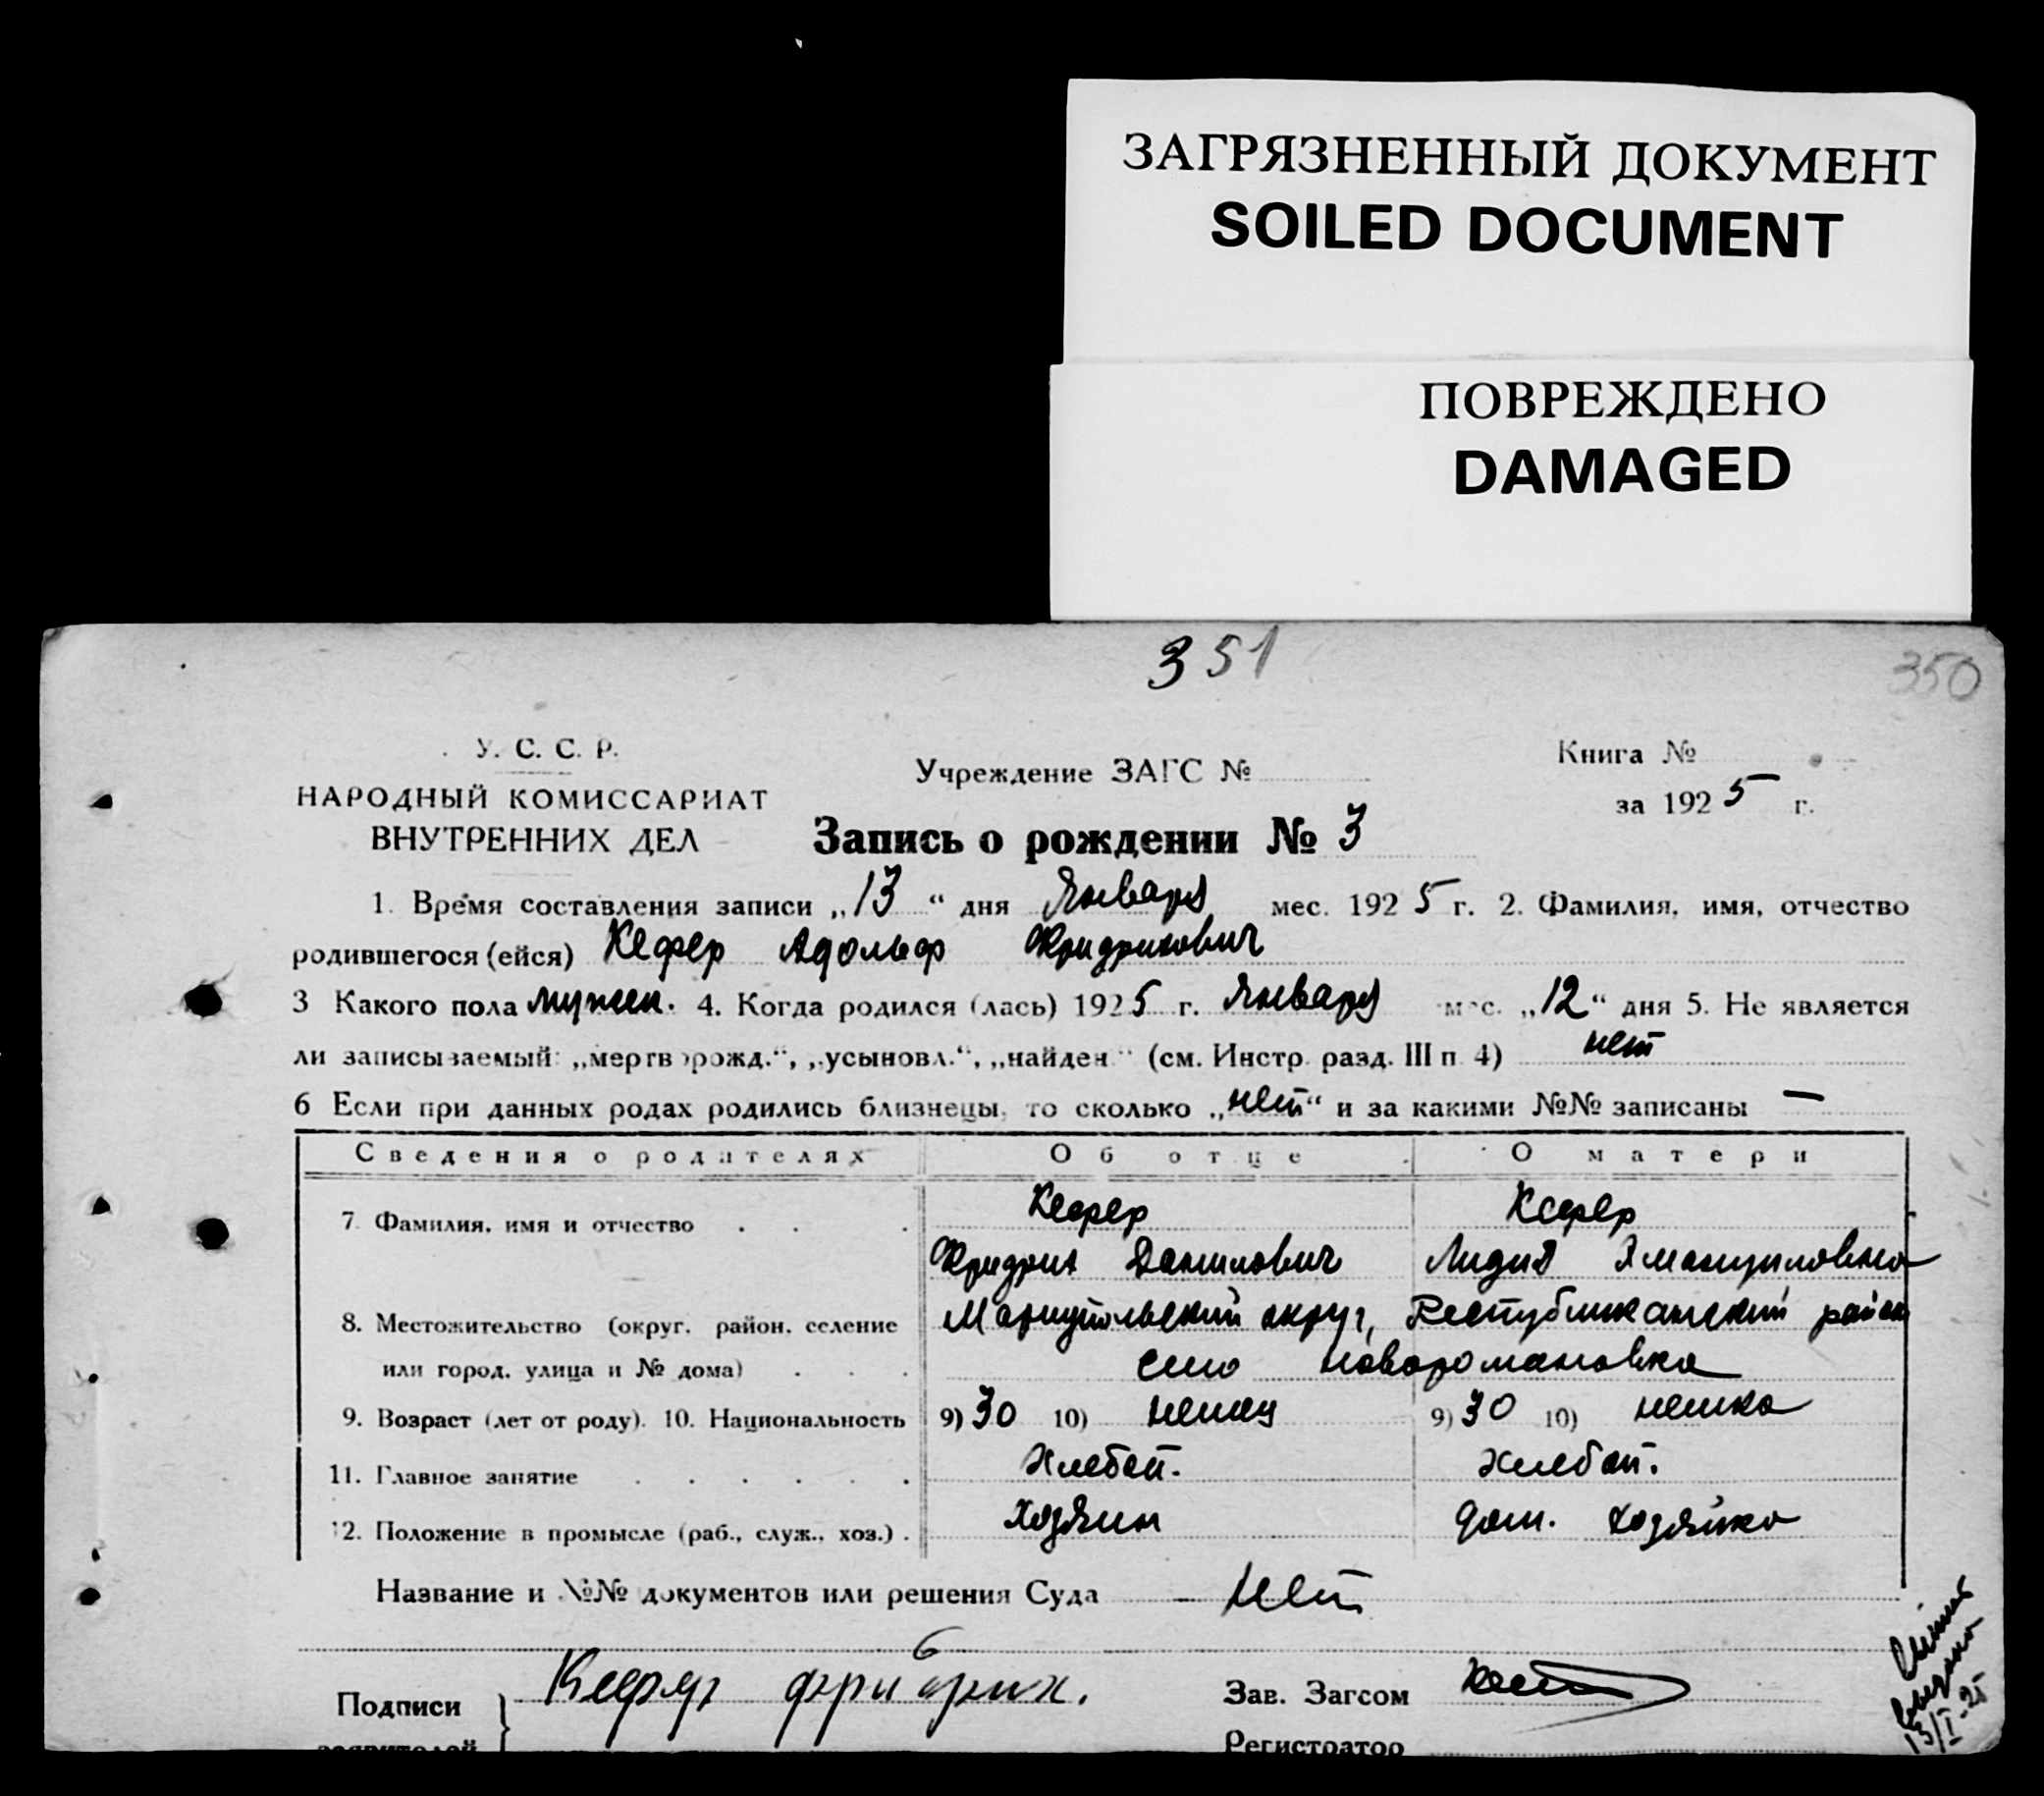 ЗАГРЯЗНЕННЫЙ ДОКУМЕНТ
SOILED DOCUMENT
ПОВРЕЖДЕНО
DAMAGED
351
350
У. С. С. Р.
НАРОДНЫЙ КОМИССАРИАТ
ВНУТРЕННИХ ДЕЛ
Учреждение ЗАГС №
Книга №
за 1925 г.
Запись о рождении № 3
1. Время составления записи „13“ дня Января мес. 1925 г. 2. Фамилия, имя, отчество
родившегося (ейся) Кефер Адольф Фридрихович
3 Какого пола мужск. 4. Когда родился (лась) 1925 г. Января мес. „12“ дня 5. Не является
ли записываемый: „мертворожд.“, „усыновл.“, „найден“ (см. Инстр. разд. III п 4) нет
6 Если при данных родах родились близнецы, то сколько „нет“ и за какими №№ записаны —
Сведения о родителях Об отце О матери
7 Фамилия, имя и отчество Кефер Кефер
Фридрих Данилович Лидия Эмануиловна
8. Местожительство (округ, район, селение Мариупольский округ, Республиканский район
или город, улица и № дома) село Новоромановка
9. Возраст (лет от роду). 10. Национальность 9) 30 10) немец 9) 30 10) немка
11. Главное занятие Хлебоп. Хлебоп.
12. Положение в промысле (раб., служ., хоз.) хозяин дом. хозяйка
Название и №№ документов или решения Суда — Нет
Подписи Кефер Фридрих.
заявителей
Зав. Загсом
Регистратор
13/I-25